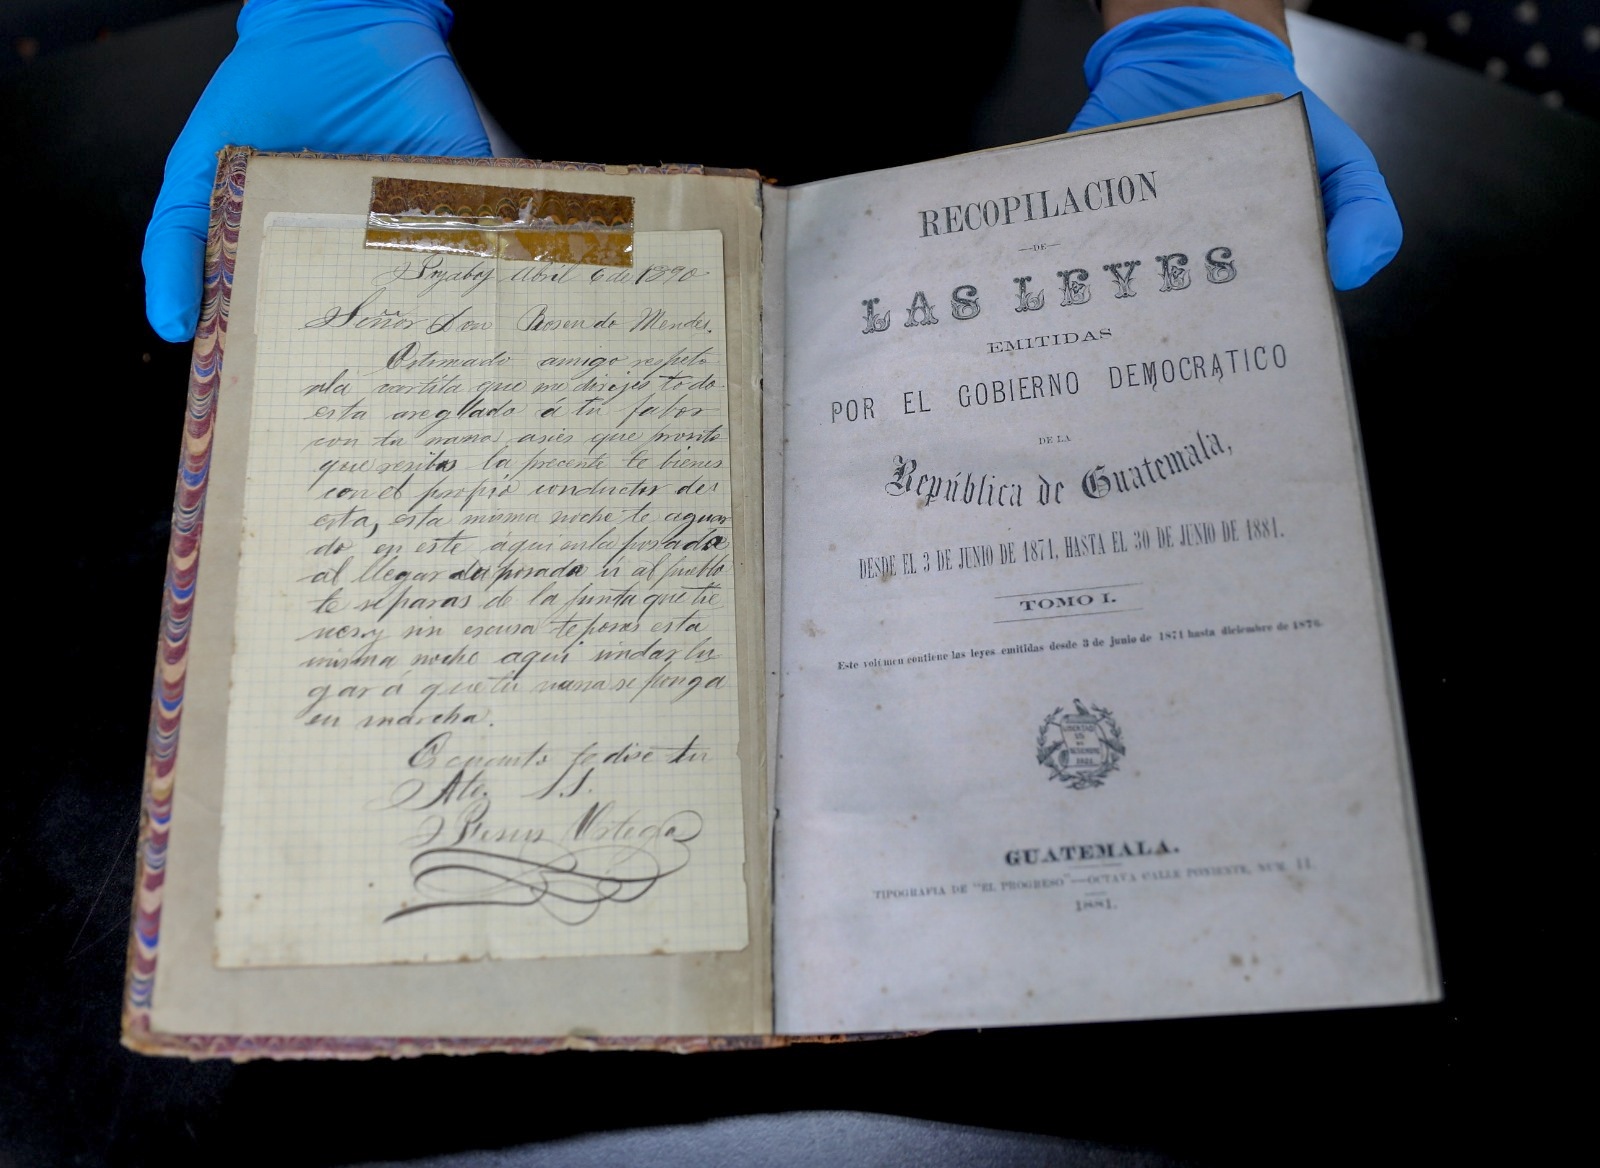 Joyabaj Abril 6 de 1890
Señor Don Rosendo Mendes.
Estimado amigo respeto
ala cartita que me dirijes todo
esta areglado á tu fabor
con tu nana asies que pronto
que resibas la precente te bienes
con el propio conductor de
esta, esta misma noche te aguar
do en este aqui enla posada
al llegar la posada ir al pueblo
te separas de la junta que tie
nes y sin escusa te pasas esta
misma noche aqui sindar lu
gar á que tu nana se ponga
en marcha.
Es cuanto te dise tu
Ato. S.S.
Ortega
RECOPILACION
—DE—
LAS LEYES
EMITIDAS
POR EL GOBIERNO DEMOCRATICO
DE LA
República de Guatemala,
DESDE EL 3 DE JUNIO DE 1871, HASTA EL 30 DE JUNIO DE 1881.
TOMO I.
Este volúmen contiene las leyes emitidas desde 3 de junio de 1871 hasta diciembre de 1876.
LIBERTAD
15
DE
SETIEMBRE
1821
GUATEMALA.
TIPOGRAFIA DE "EL PROGRESO"—OCTAVA CALLE PONIENTE, NUM. 11.
1881.